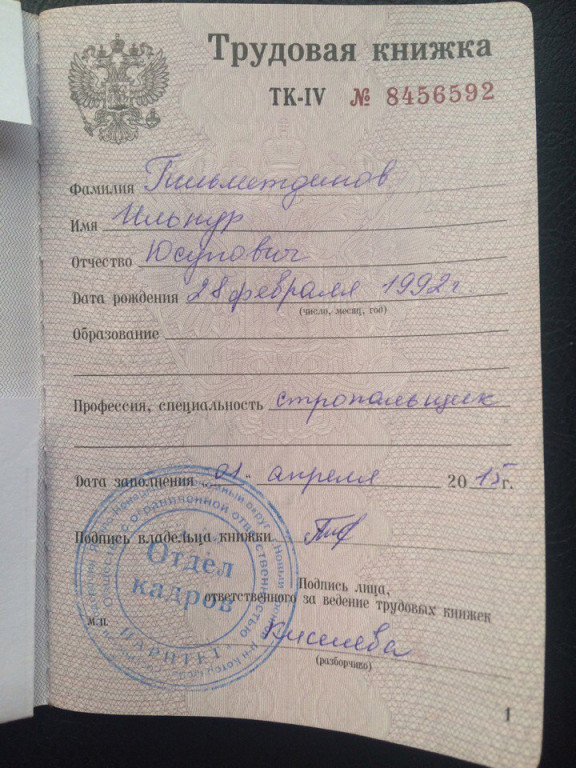 Трудовая книжка
ТК-IV № 8456592
Фамилия Гильметдинов
Имя Ильнур
Отчество Юсупович
Дата рождения 28 февраля 1992 г
(число, месяц, год)
Образование
Профессия, специальность стропальщик
Дата заполнения 01. апреля 2015 г.
Подпись владельца книжки
Отдел
кадров
ПАРИТЕТ
Подпись лица,
ответственного за ведение трудовых книжек
м.п. Киселева
(разборчиво)
1